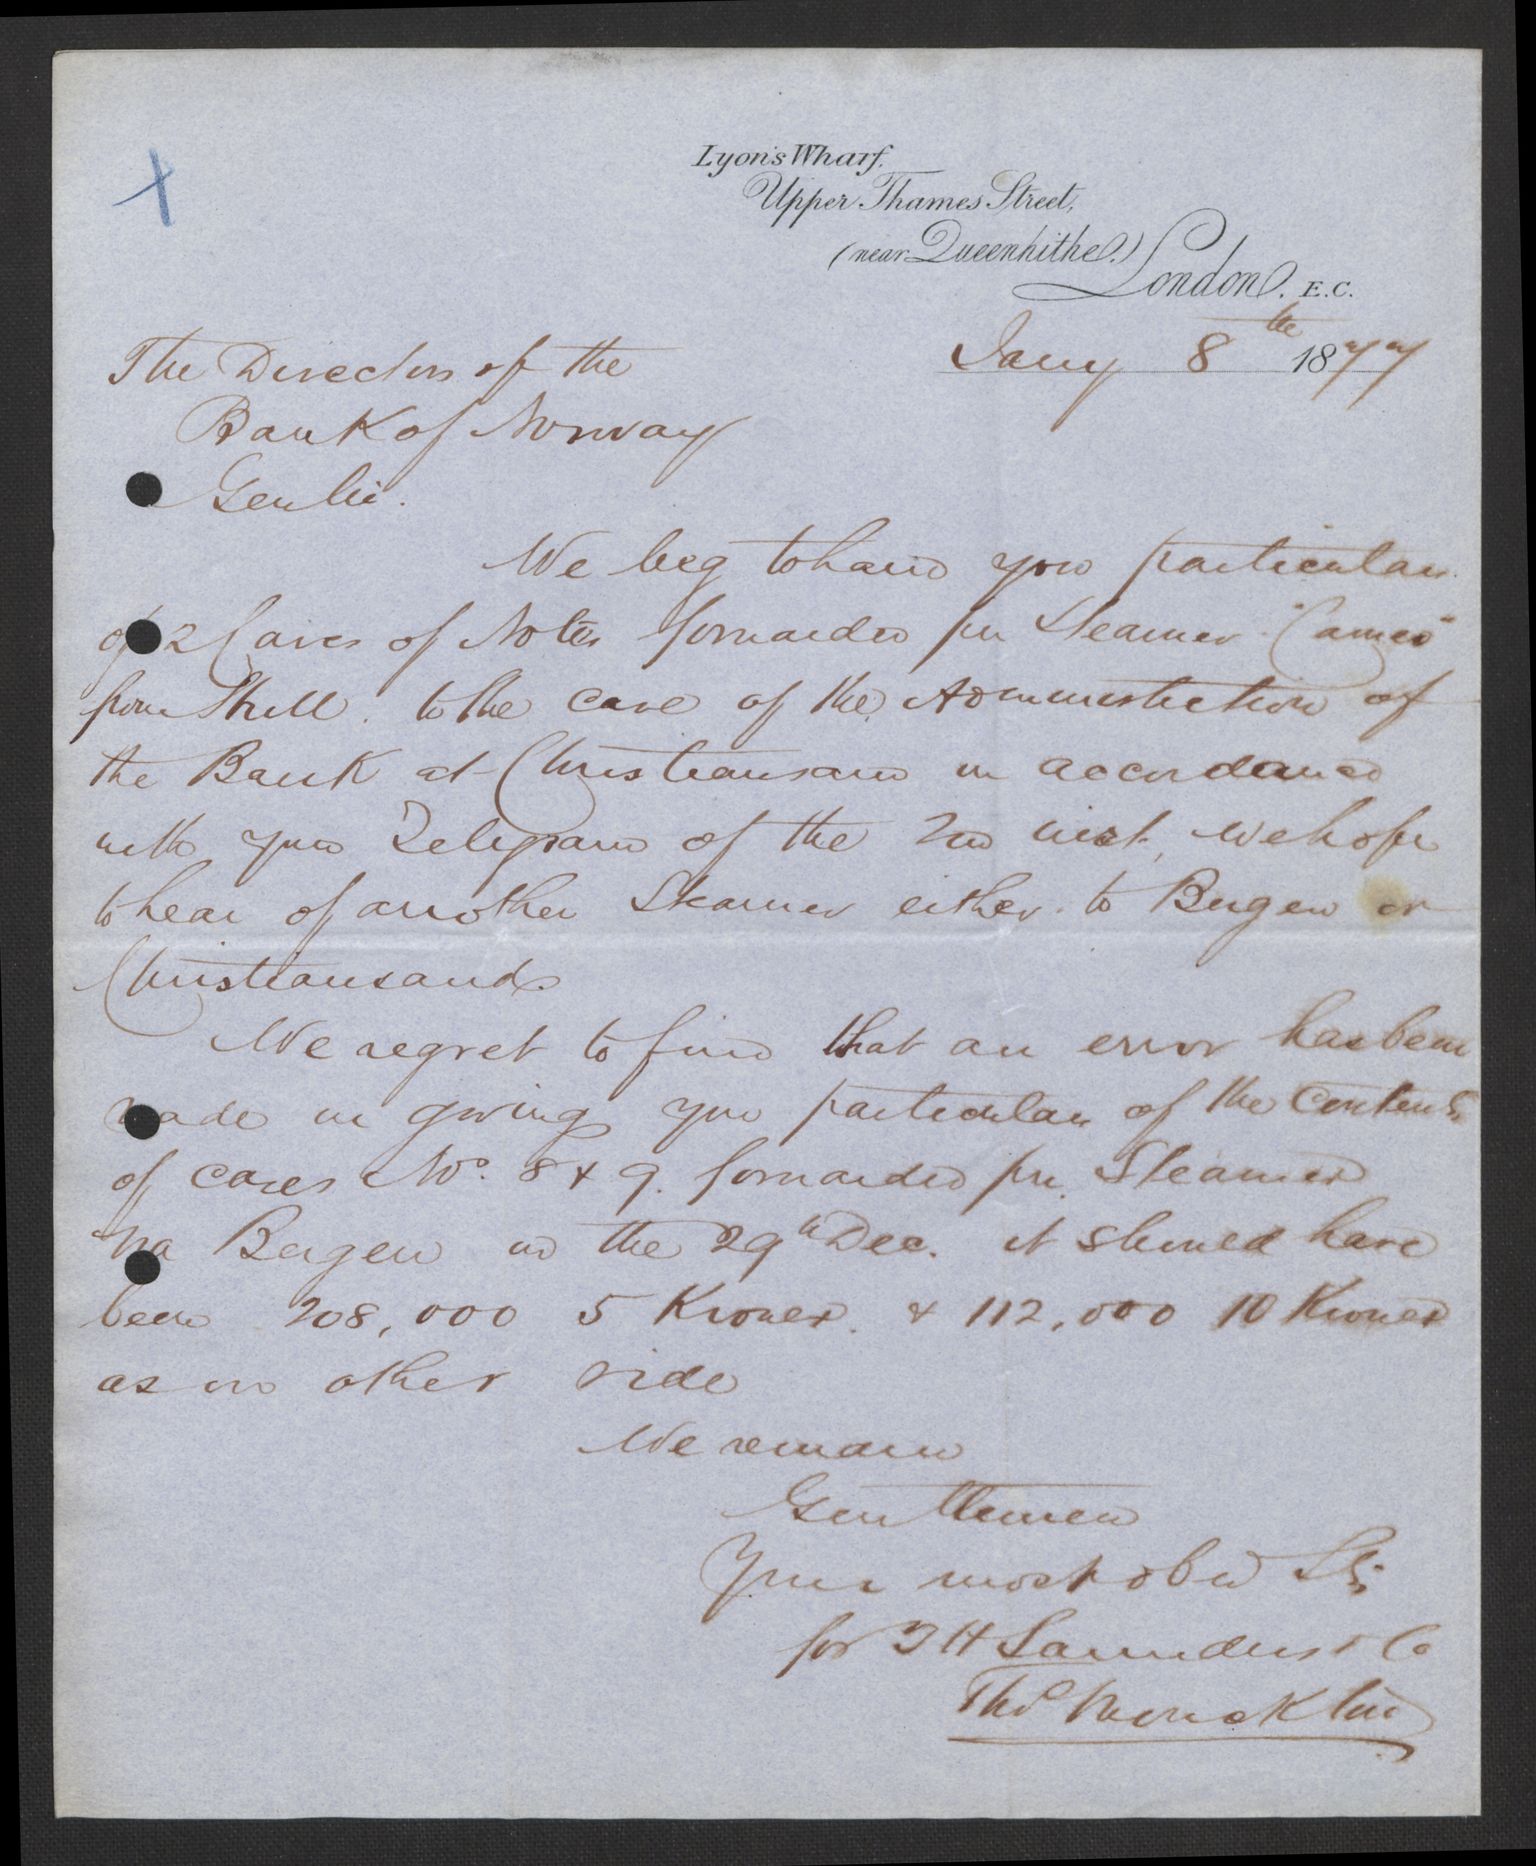 Lyon's Wharf,
Upper Thames Street,
(near Queenhithe.)
London. E.C.
Jany 8th 1877
The Directors of the
Bank of Norway
Gentn.
We beg to hand you particulars
of 2 Cases of Notes forwarded per Steamer "Cameo"
from Hull. to the care of the Administration of
the Bank at Christiansand in accordance
with your Telegram of the 2nd inst, we hope
to hear of another Steamer either to Bergen or
Christiansand
We regret to find that an error has been
made in giving you particulars of the Contents
of cases No. 8 & 9. forwarded per Steamer
via Bergen on the 29th Dec. it should have
been 208,000 5 Kroner. & 112,000 10 Kroner
as on other side
We remain
Gentlemen
Your most obed Sts
for T H Saunders & Co
Thos